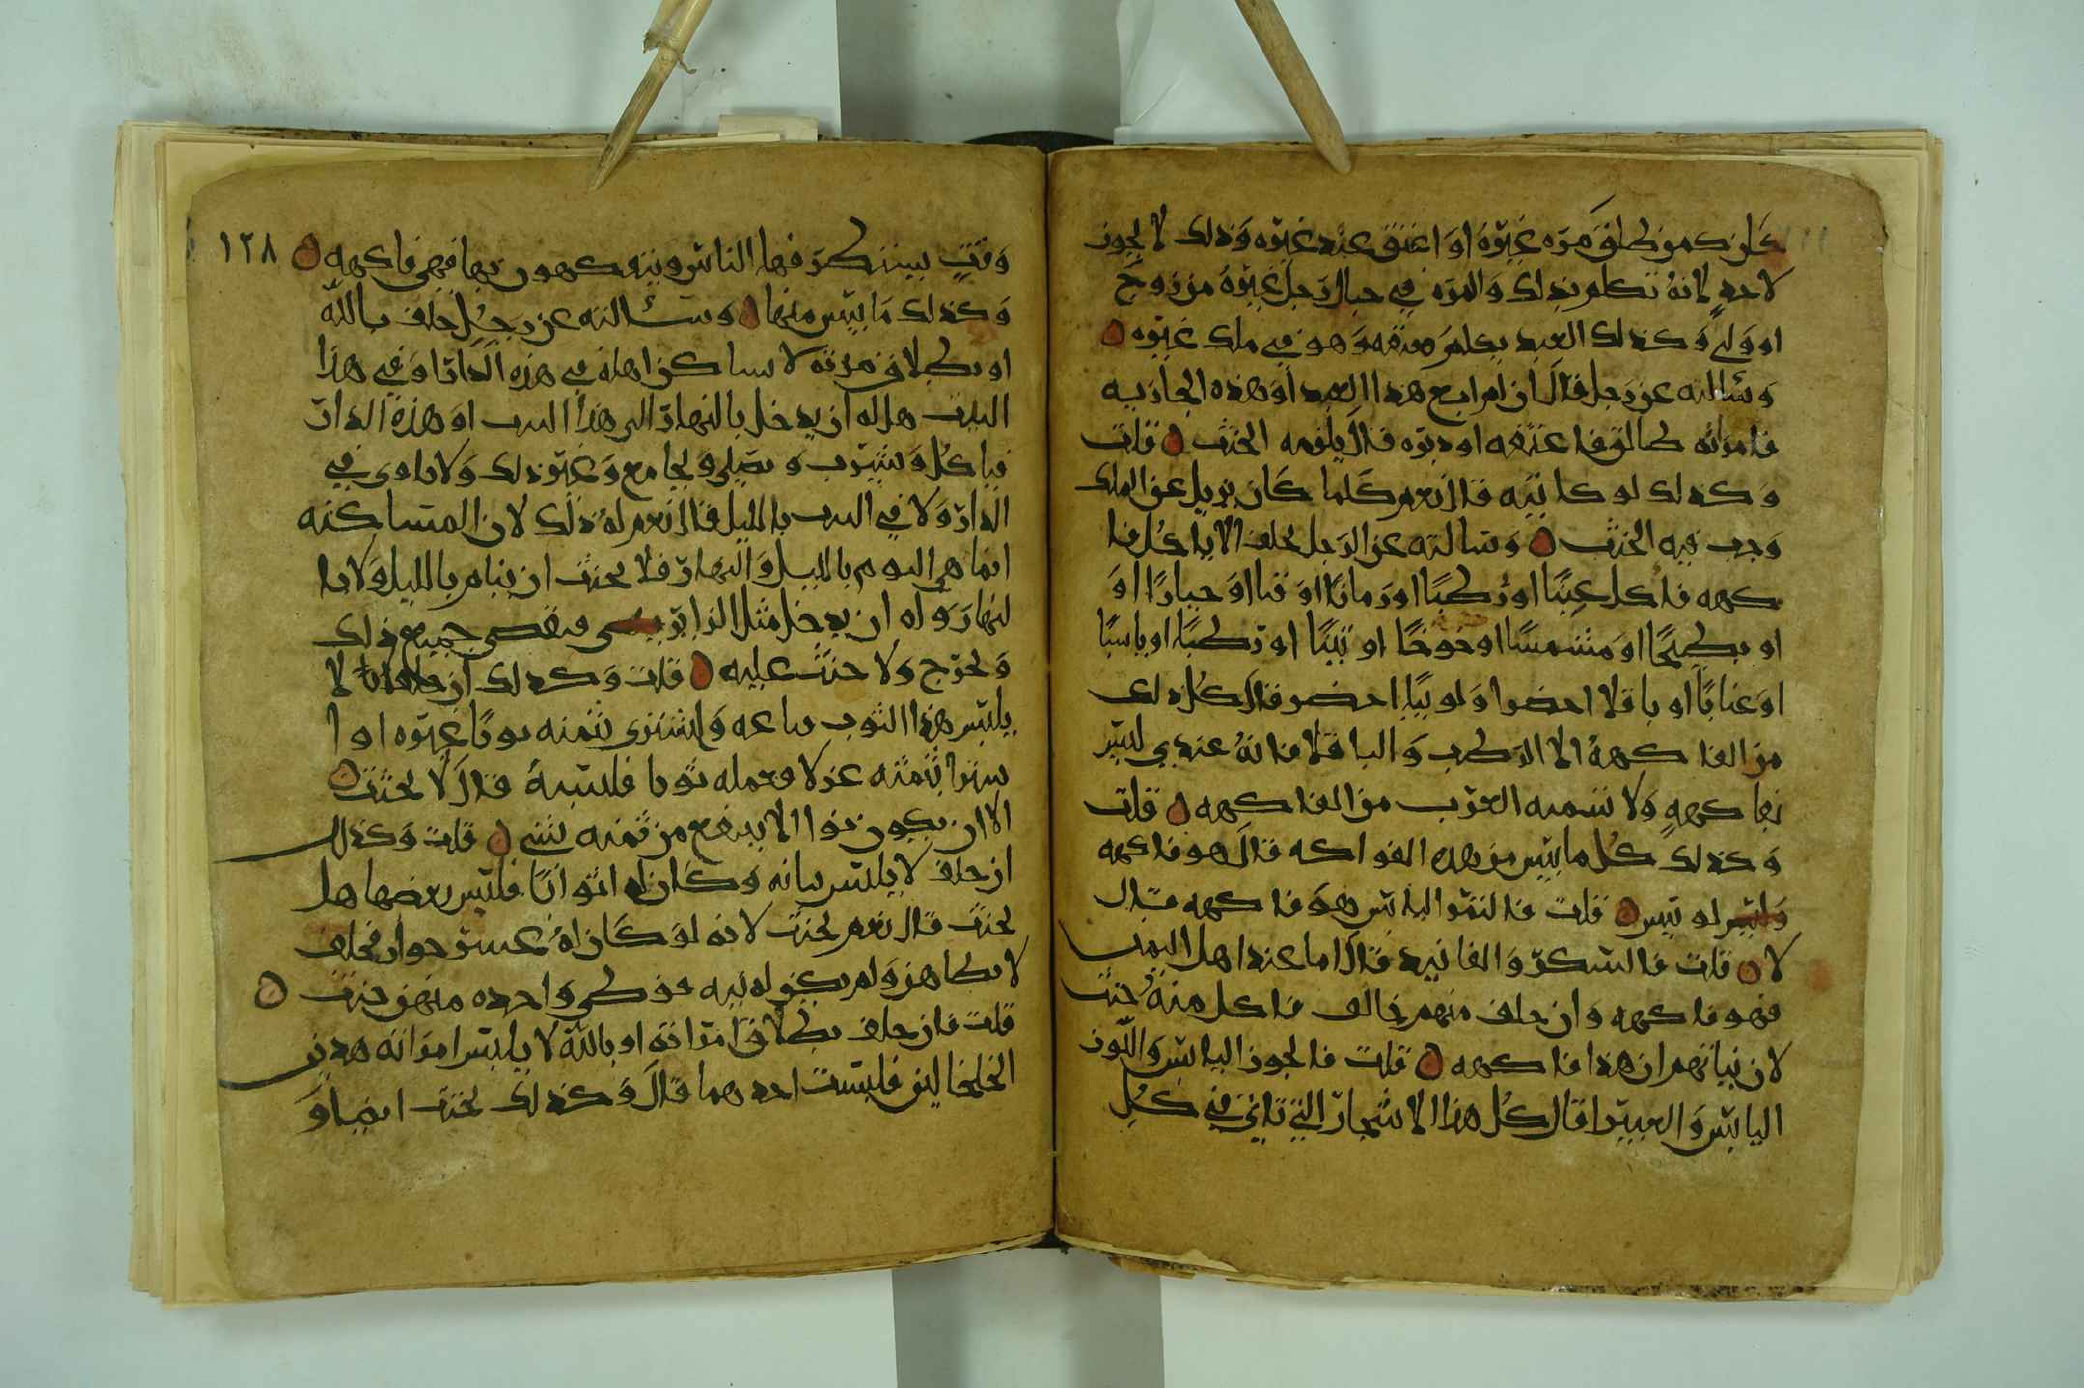 كان كمن طلق مره غيره او اعتق عبد غيره وذلك لا يجوز
لاحد لانه تكلم بذلك والمره في حبال رجل غيره من زوج
او ولي وكذلك العبد يكلم بعتقه وهو في ملك غيره
وسألته عن رجل قال ان لم ابع هذا العبد او هذه الجاريه
فامراته طالق فاعتقه او دبره قال يلزمه الحنث قلت
وكذلك لو كاتبه قال نعم كلما كان يزيل عن الملك
وجب فيه الحنث وسالته عن الرجل يحلف الا ياكل فا
كهه فاكل عنبا او رطبا او رمانا او قثا او خيارا او
او بطيخا او مشمشا او خوخا او تينا او رطبا او يابسا
او عنابا او باقلا اخضر او لوبيا اخضر قال كل ذلك
من الفاكهة الا الرطب والباقلا فانه عندي ليس
بفاكهه ولا تسميه العرب من الفاكهه قلت
وكذلك كل ما يبس من هذه الفواكه قال هو فاكهه
وليس لو يبس قلت فالتمر اليابس هو فاكهه قال
لا قلت فالسكر والفانيد قال اما عند اهل اليمن
فهو فاكهه وان حلف منهم حالف فاكل منه حنث
لان نياتهم ان هذا فاكهه قلت فالجوز اليابس واللوز
اليابس والغبيرا قال كل هذا الاشجار التي تاتي في كل
١٢٨
وقت يتذكر فيها الناس ويتفكهون بها فهي فاكهه
وكذلك ما يبس منها وسئالته عن رجل حلف بالله
او بطلاق مرته لا ساكن اهله في هذه الدار او في هذا
البيت هل له ان يدخل بالنهار الى هذا البيت او هذه الدار
فياكل ويشرب ويصلي ويجامع وغير ذلك ولا ياوى في
الدار ولا في البيت بالليل قال نعم له ذلك لان المتساكنه
انما هي النوم بالليل والنهار فلا يحنث ان ينام بالليل ولا با
لنهار وله ان يدخل مثل الزاير فيقضي جميع ذلك
ويخرج ولا حنث عليه قلت وكذلك ان حلف لا
يلبس هذا الثوب فباعه واشترى بثمنه ثوبا غيره او ا
شترا بثمنه غزلا فعمله ثوبا فلبسه قال لا يحنث
الا ان يكون نوا الا ينتفع من ثمنه بشي قلت وكذلك
ان حلف لا يلبس ثيابه وكان له اثوابا فلبس بعضها هل
يحنث قال نعم يحنث لانه لو كان له عشر جوار فحلف
لا يطاهن ولم يكن له نيه فوطى واحده منهن حنث
قلت فان حلف بطلاق امراته او بالله لا يلبس امراته هذين
الخلخالين فلبست احدهما قال وكذلك يحنث ايضا و